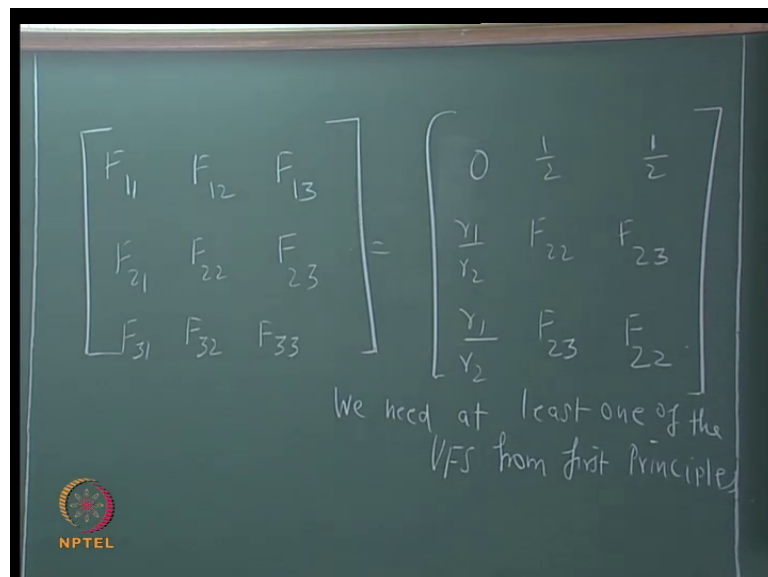 F₁₁ F₁₂ F₁₃ 0 1/2 1/2
F₂₁ F₂₂ F₂₃ = r₁/r₂ F₂₂ F₂₃
F₃₁ F₃₂ F₃₃ r₁/r₂ F₂₃ F₂₂
We need at least one of the
VFS from first Principles
NPTEL